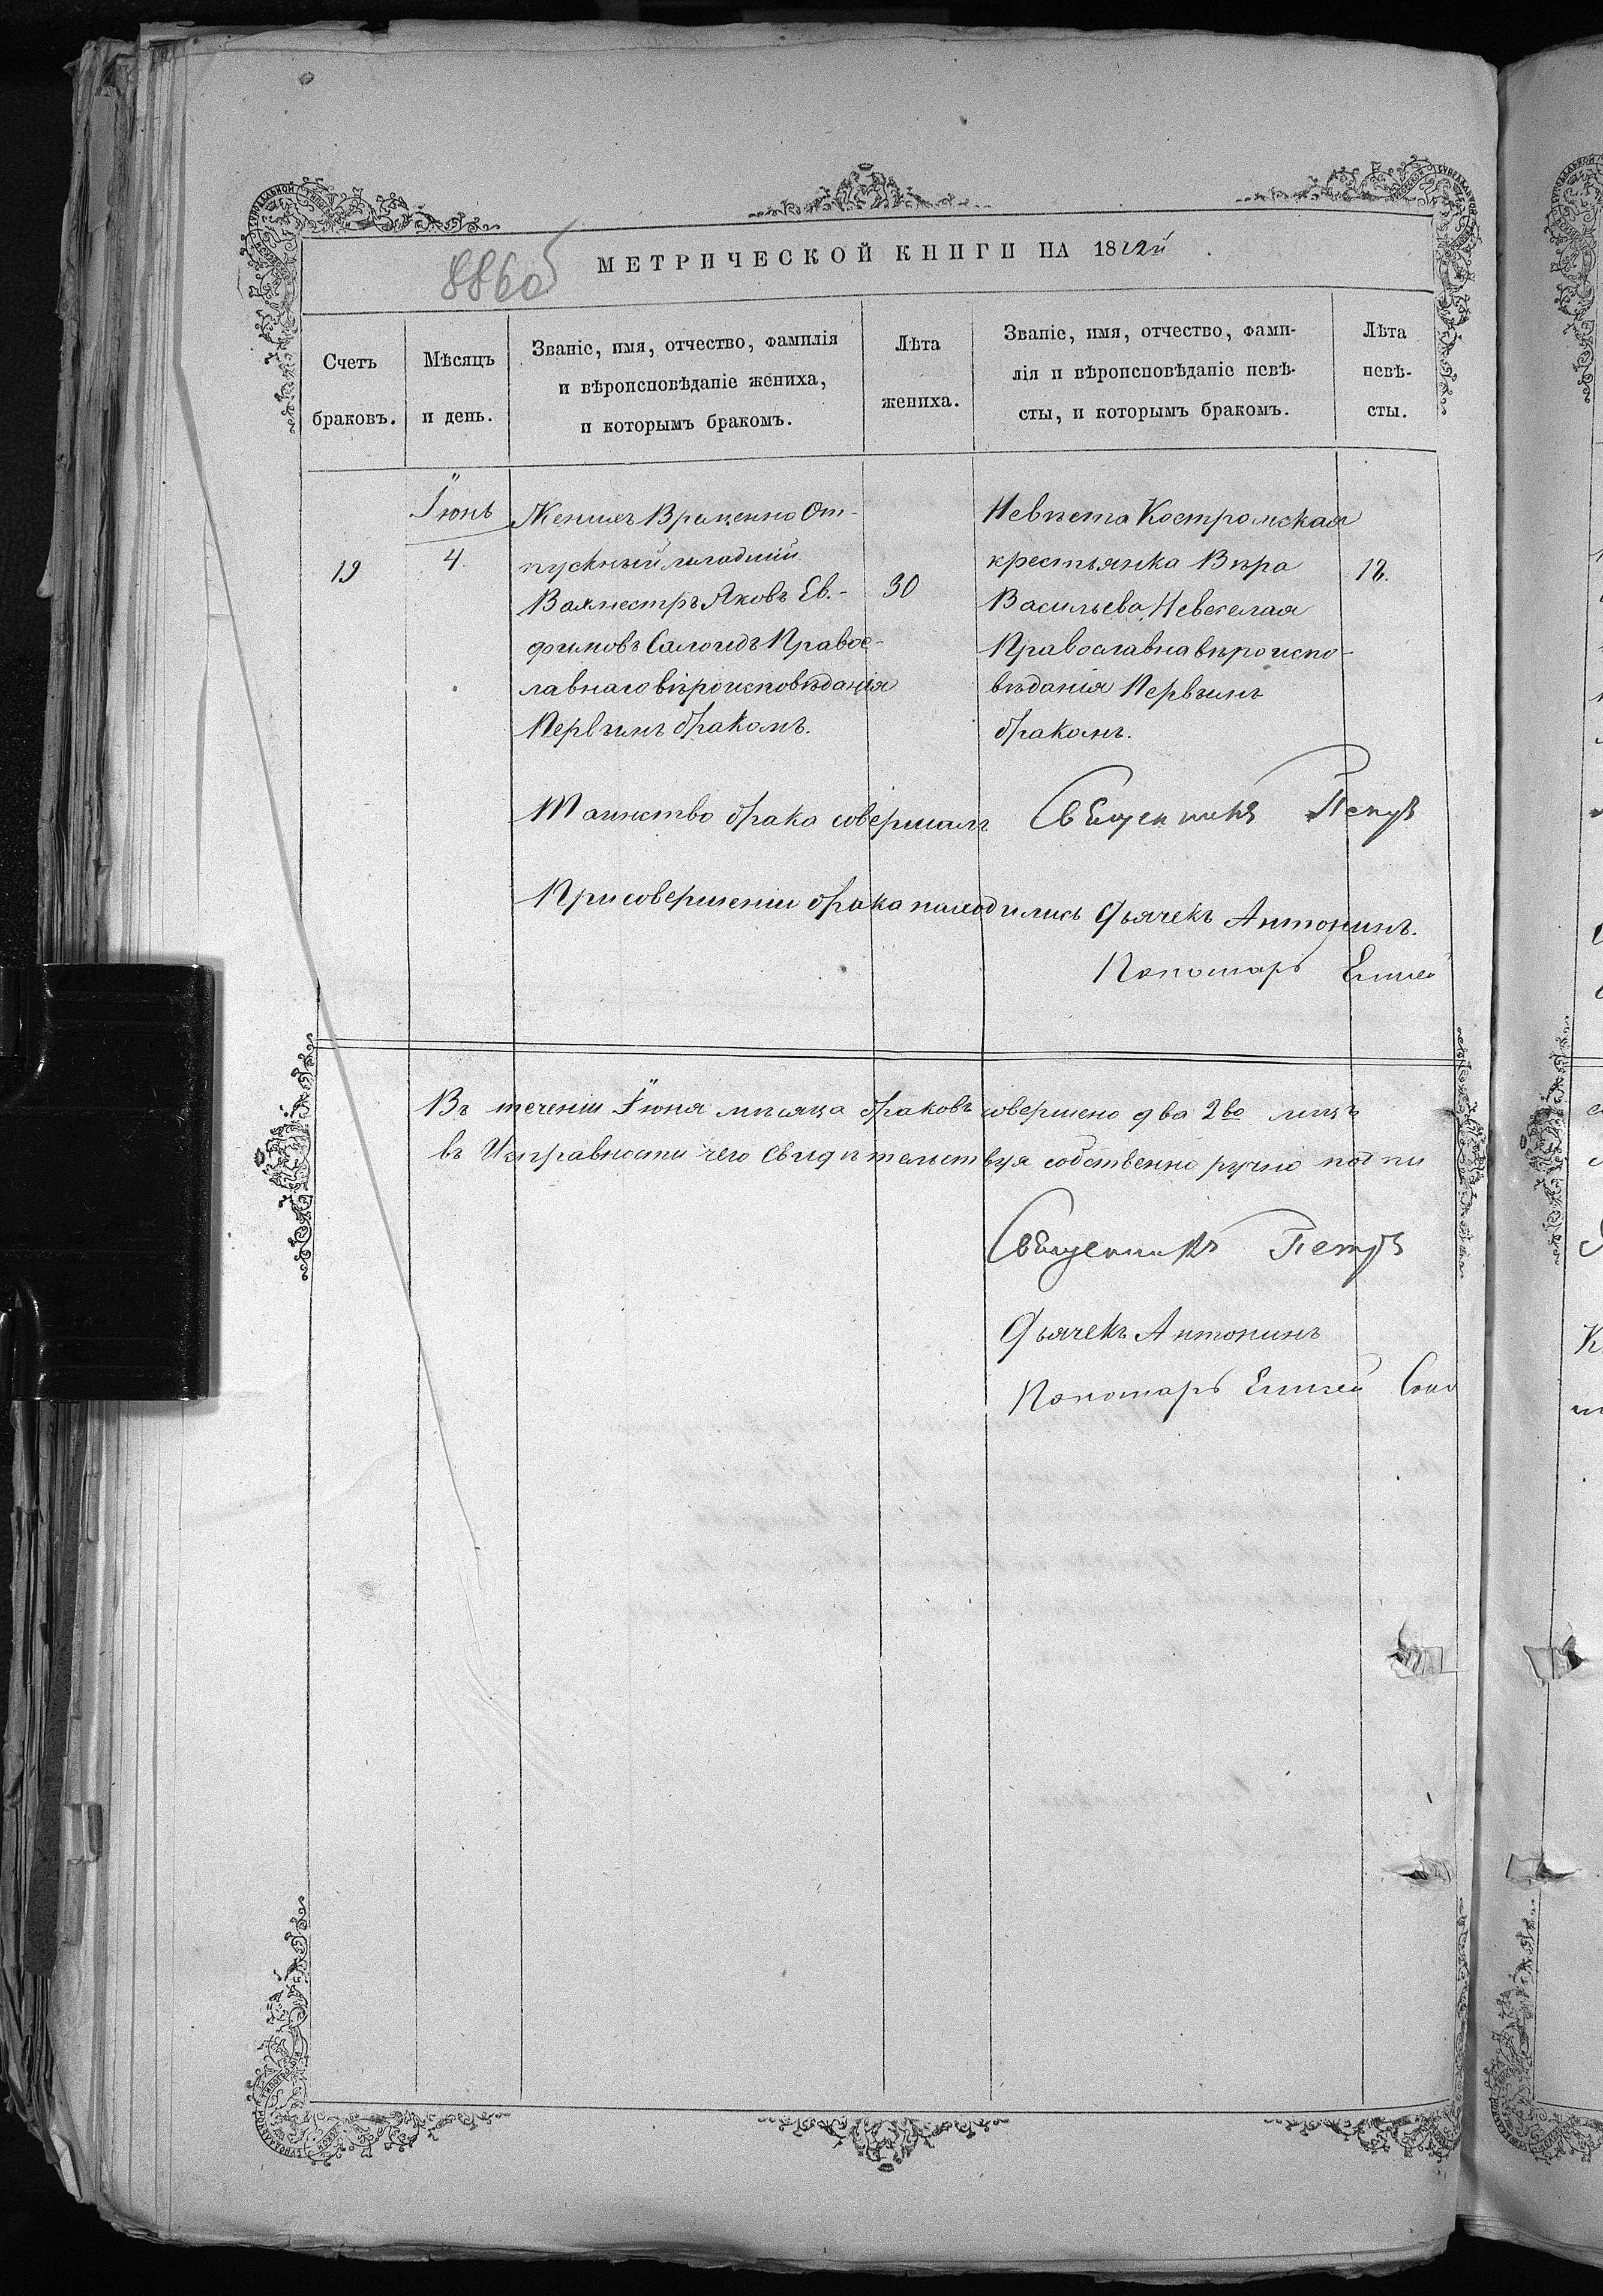 886об
МЕТРИЧЕСКОЙ КНИГИ НА 18
Счетъ браковъ.
Мѣсяцъ и день.
Званіе, имя, отчество, фамилія
и вѣроисповѣданіе жениха,
и которымъ бракомъ.
Лѣта
жениха.
Званіе, имя, отчество, фами-
лія и вѣроисповѣданіе невѣ-
сты, и которымъ бракомъ.
Лѣта
невѣ-
сты.
19
Іюнь
4.
Женихъ Временно От-
пускный младшій
Вахместръ Яковъ Ев.-
фимовъ Правос-
лавнаго вѣроисповѣданія
Первымъ бракомъ.
30
Невѣста Костромская
крестьянка Вѣра
Васильева Невеселая
Православна вѣроиспо-
вѣданія Первымъ
бракомъ.
Таинство брака совершалъ Священникъ Петръ
При совершеніи брака находились Дьячекъ Антонинъ.
Пономарь Елисей
Въ теченіи Іюня мѣсяца браковъ совершено два 2ва
въ Исправности чего Свидѣтельствуя собственно ручно подпи
Священникъ Петръ
Дьячекъ Антонинъ
Пономарь Елисей